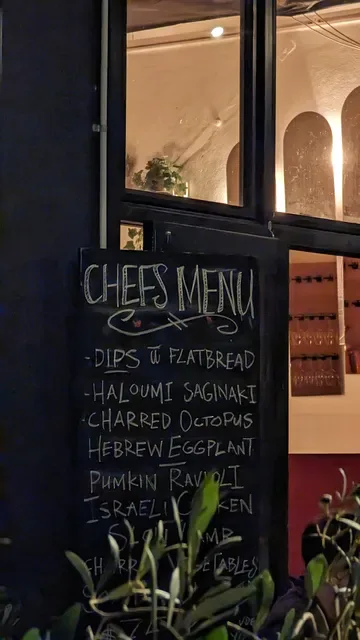 CHEFS MENU
-DIPS W FLATBREAD
-HALOUMI SAGINAKI
-CHARRED OCTOPUS
HEBREW EGGPLANT
PUMKIN RAVIOLI
ISRAELI
SLOW